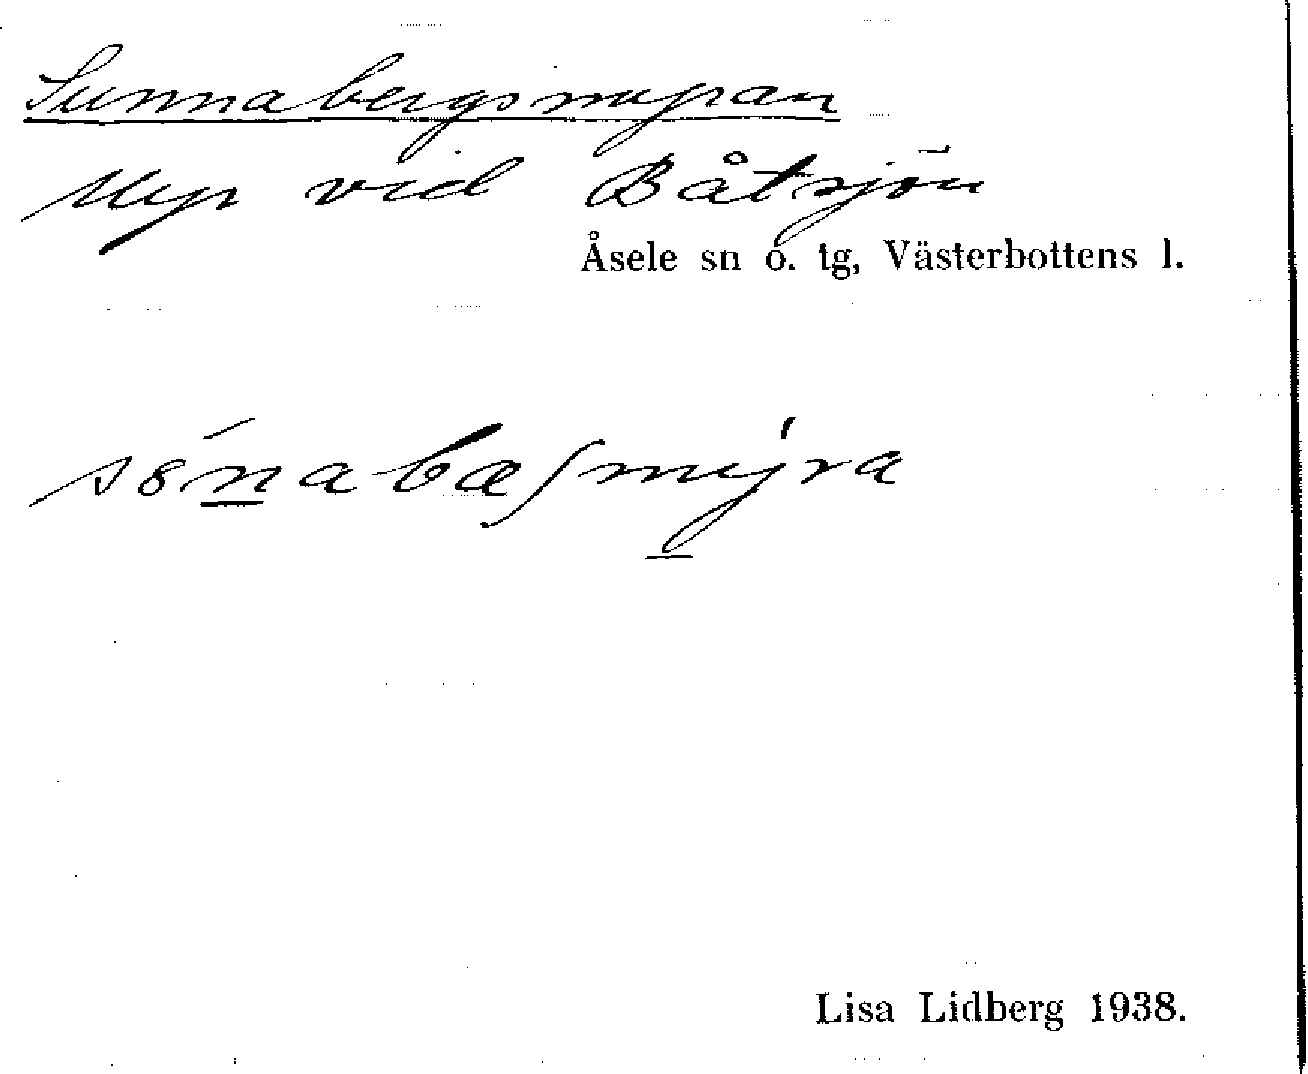 Sunnabergsmyran
Myr vid Båtsjön
Åsele sn o. tg, Västerbottens l.
s8́n̲abaʃmy̲̍ra
Lisa Lidberg 1938.